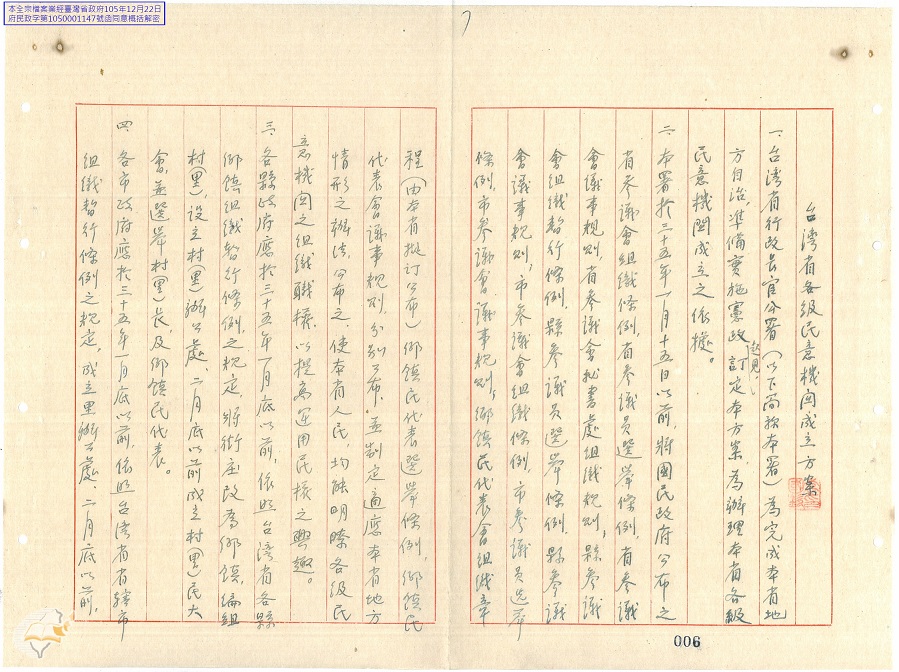 本全宗檔案業經臺灣省政府105年12月22日
府民政字第1050001147號函同意概括解密
台湾省各级民意機関成立方案
一、台湾省行政長官公署（以下简称本署）為完成本省地
方自治，準備實施憲政起見，訂定本方案，為辦理本省各級
民意機関成立之依據。
二、本署於三十五年一月十五日以前，將國民政府公布之
省参議會組織條例，省参議員選舉條例，省参議
會議事規則，省参議會秘書處組織規則，縣参議
會組織暫行條例，縣参議員選舉條例，縣参議
會議事規則，市参議會組織條例，市参議員选举
條例，市参議會議事規則，鄉鎮民代表會組織章
程（由本省擬訂公布）鄉鎮民代表選举條例，鄉鎮民
代表會議事規則，分別公布，並制定適應本省地方
情形之辦法公布之，使本省人民，均能明瞭各级民
意機関之組織職權，以提高運用民權之興趣。
三、各縣政府應於三十五年一月底以前，依照台湾省各縣
鄉鎮組織暫行條例之規定，將街庄改為鄉鎮，編組
村（里），設立村（里）辦公處，二月底以前成立村（里）民大
會，並選举村（里）長，及鄉鎮民代表。
四、各市政府應於三十五年一月底以前，依照台湾省省轄市
組織暫行條例之規定，成立里辦公處，二月底以前，
006